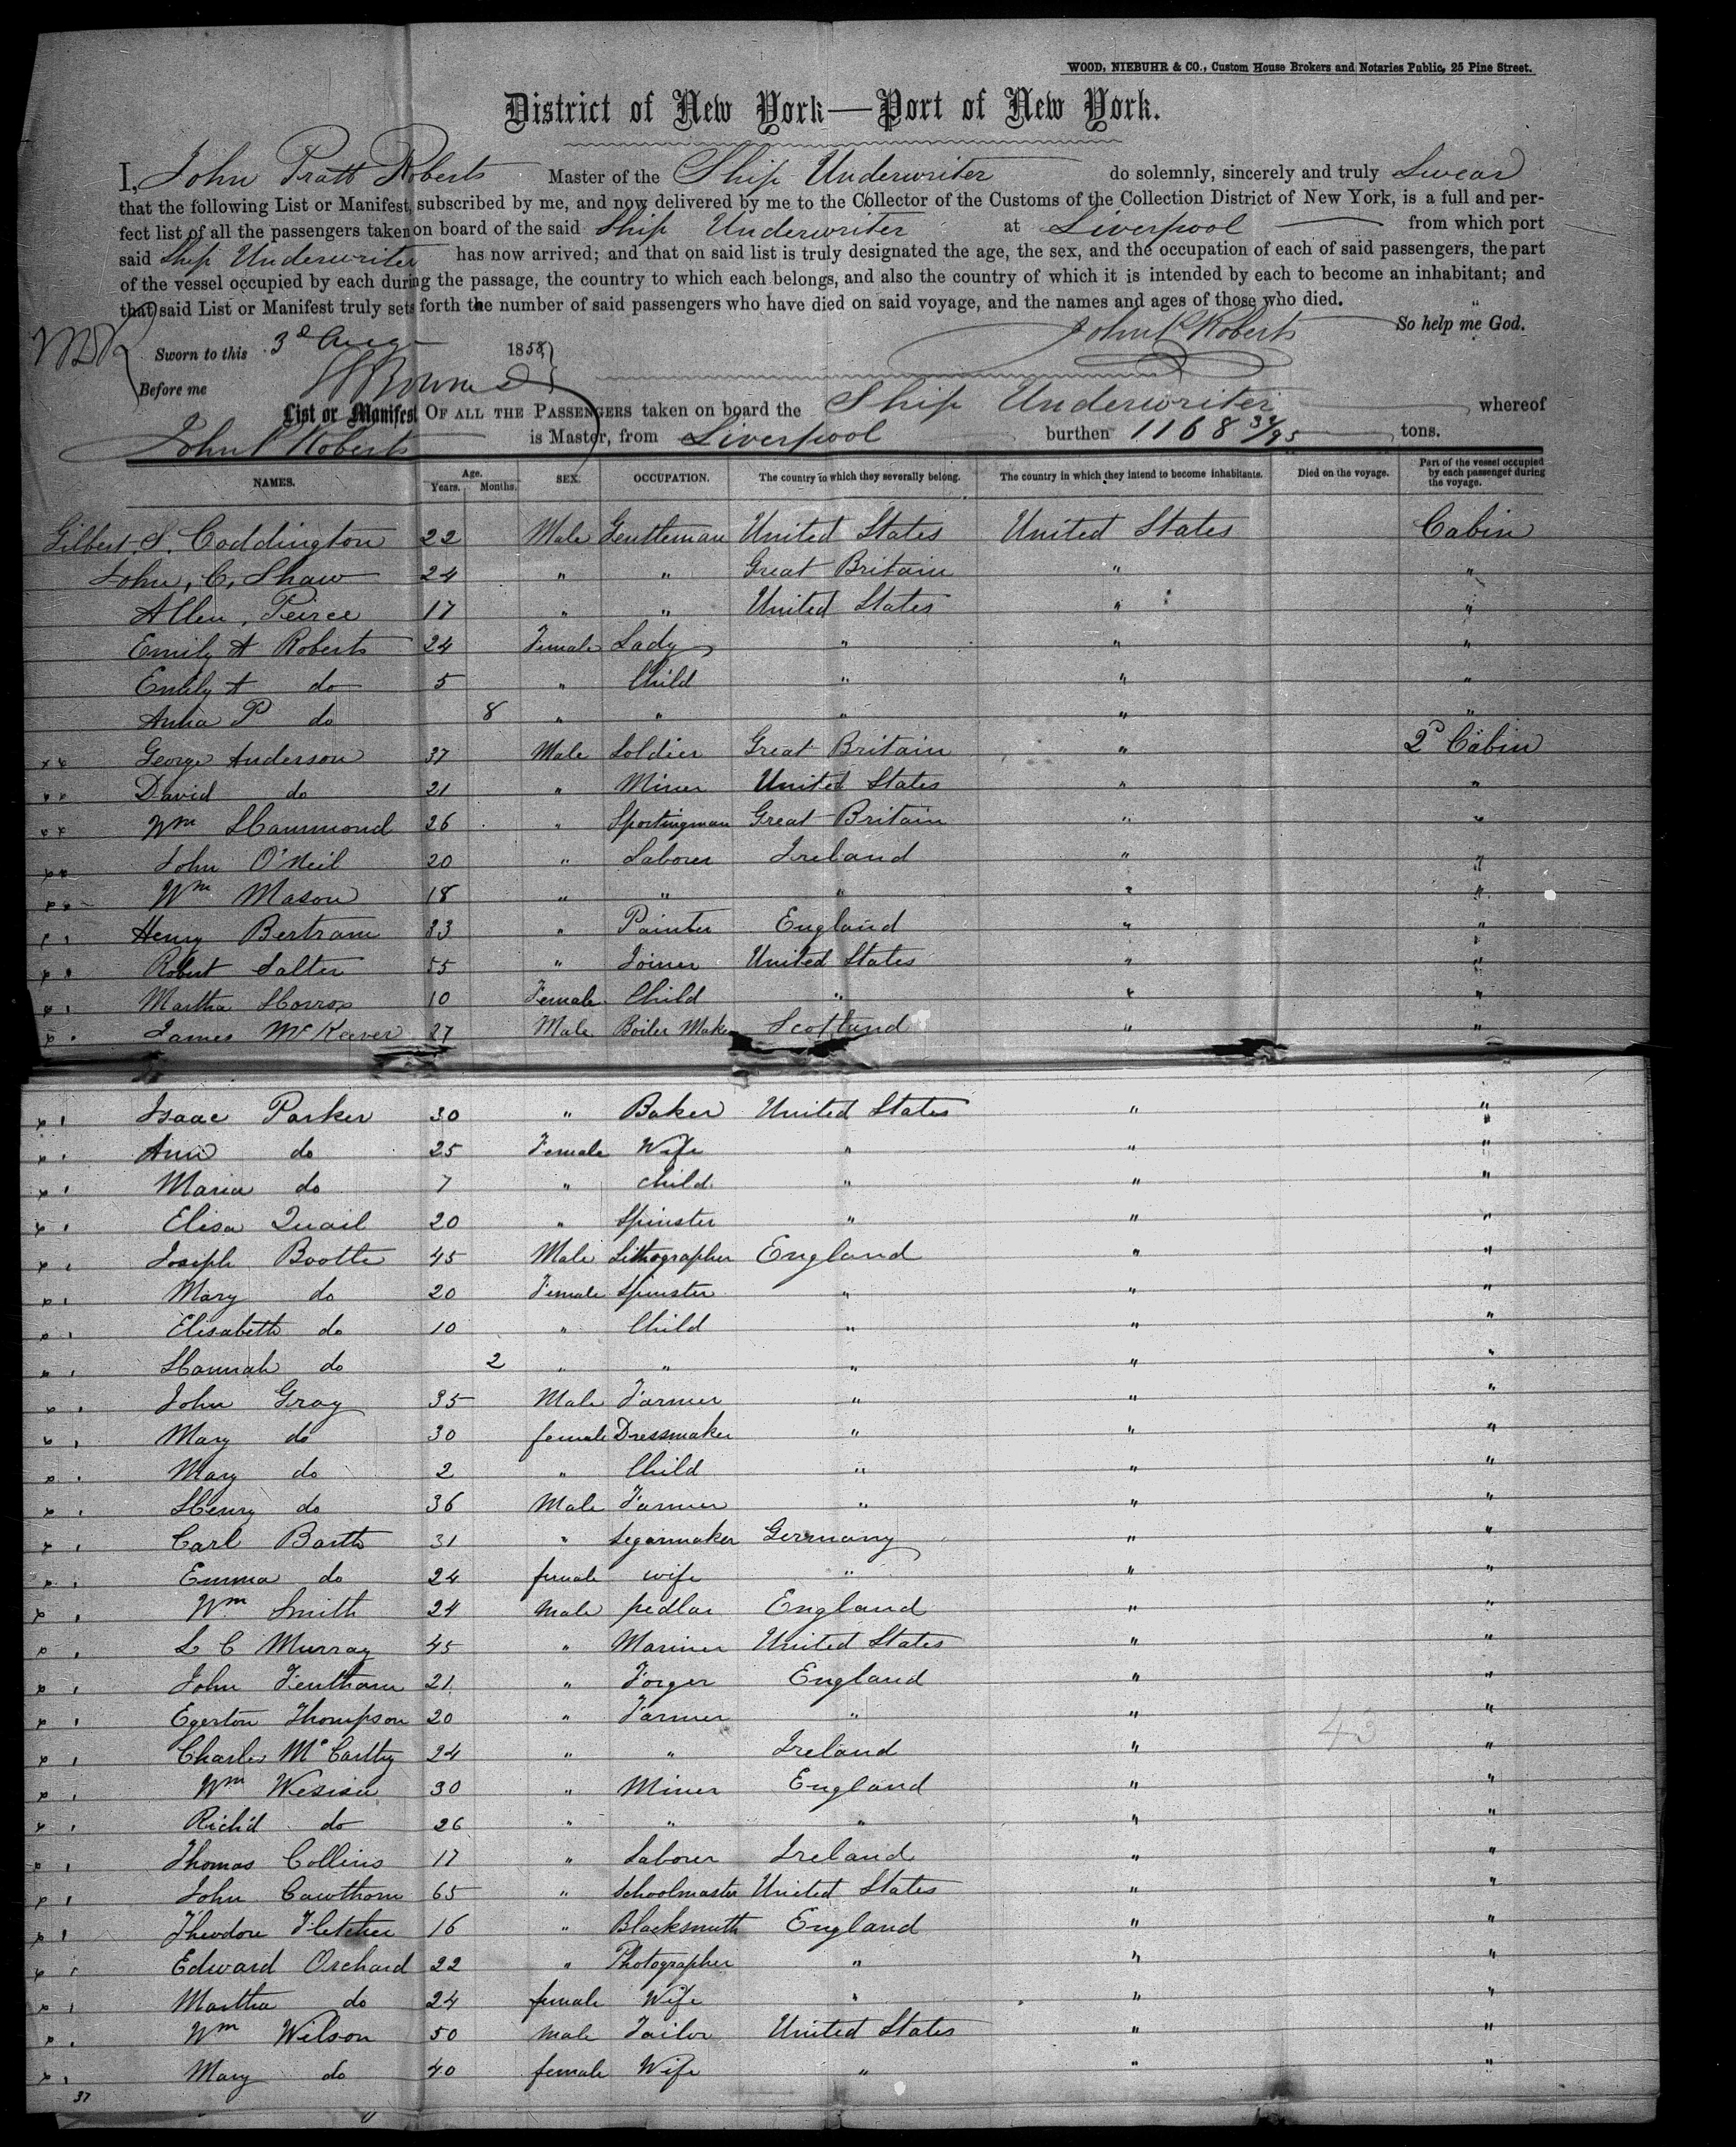 WOOD, NIEBUHR & CO., Custom House Brokers and Notaries Public, 25 Pine Street.
District of New York—Port of New York.
I, John Pratt Roberts Master of the Ship Underwriter do solemnly, sincerely and truly Swear
that the following List or Manifest, subscribed by me, and now delivered by me to the Collector of the Customs of the Collection District of New York, is a full and per-
fect list of all the passengers taken on board of the said Ship Underwriter at Liverpool from which port
said Ship Underwriter has now arrived; and that on said list is truly designated the age, the sex, and the occupation of each of said passengers, the part
of the vessel occupied by each during the passage, the country to which each belongs, and also the country of which it is intended by each to become an inhabitant; and
that said List or Manifest truly sets forth the number of said passengers who have died on said voyage, and the names and ages of those who died.
So help me God.
John P Roberts
Sworn to this 3d Aug 1858
Before me
List or Manifest OF ALL THE PASSENGERS taken on board the Ship Underwriter whereof
John P Roberts is Master, from Liverpool burthen 1168 34/95 tons.
NAMES. Age. Years. Months. SEX. OCCUPATION. The country to which they severally belong. The country in which they intend to become inhabitants. Died on the voyage. Part of the vessel occupied by each passenger during the voyage.
Gilbert S. Coddington 22 Male Gentleman United States United States Cabin
John, C, Shaw 24 " " Great Britain " "
Allen, Peirce 17 " " United States " "
Emily A Roberts 24 Female Lady " " "
Emily A do 5 " Child " " "
Anna P do 8 " " " " "
George Anderson 37 Male Soldier Great Britain " 2d Cabin
David do 21 " Miner United States " "
Wm Hammond 26 " Sportingman Great Britain " "
John O'Neil 20 " Laborer Ireland " "
Wm Mason 18 " " " " "
Henry Bertram 33 " Painter England " "
Robert Salter 55 " Joiner United States " "
Martha Horrox 10 Female Child " " "
James McKeever 27 Male Boiler Maker Scotland " "
Isaac Parker 30 " Baker United States " "
Ann do 25 Female Wife " " "
Maria do 7 " child " " "
Elisa Quail 20 " Spinster " " "
Joseph Booth 45 Male Lithographer England " "
Mary do 20 Female Spinster " " "
Elisabeth do 10 " Child " " "
Hannah do 2 " " " " "
John Gray 35 Male Farmer " " "
Mary do 30 female Dressmaker " " "
Mary do 2 " Child " " "
Henry do 36 Male Farmer " " "
Carl Barth 31 " Segarmaker Germany " "
Emma do 24 female wife " " "
Wm Smith 24 Male pedlar England " "
L C Murray 45 " Mariner United States " "
John Fentham 21 " Forger England " "
Egerton Thompson 20 " Farmer " " "
Charles McCarthy 24 " " Ireland " "
Wm 30 " Miner England " "
Rich'd do 26 " " " " "
Thomas Collins 17 " Laborer Ireland " "
John Cawthorn 65 " Schoolmaster United States " "
Theodore Fletcher 16 " Blacksmith England " "
Edward Orchard 22 " Photographer " " "
Martha do 24 female Wife " " "
Wm Wilson 50 Male Tailor United States " "
Mary do 40 female Wife " " "
43
37